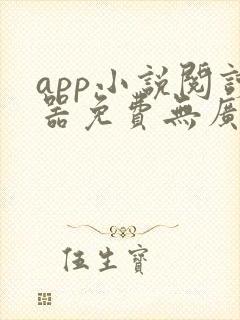 app小說閱讀
器免費無廣
伍生寶